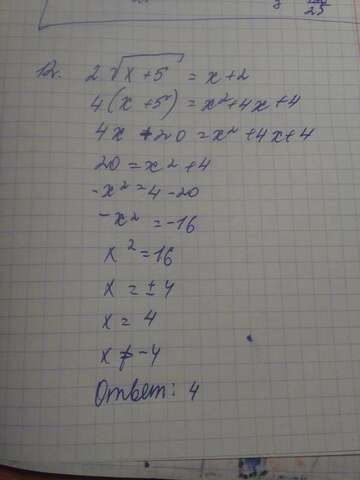 12. 2√x+5 = x+2
4(x+5) = x²+4x+4
4x+20 = x²+4x+4
20 = x²+4
-x² = 4-20
-x² = -16
x² = 16
x = ±4
x = 4
x ≠ -4
Ответ: 4